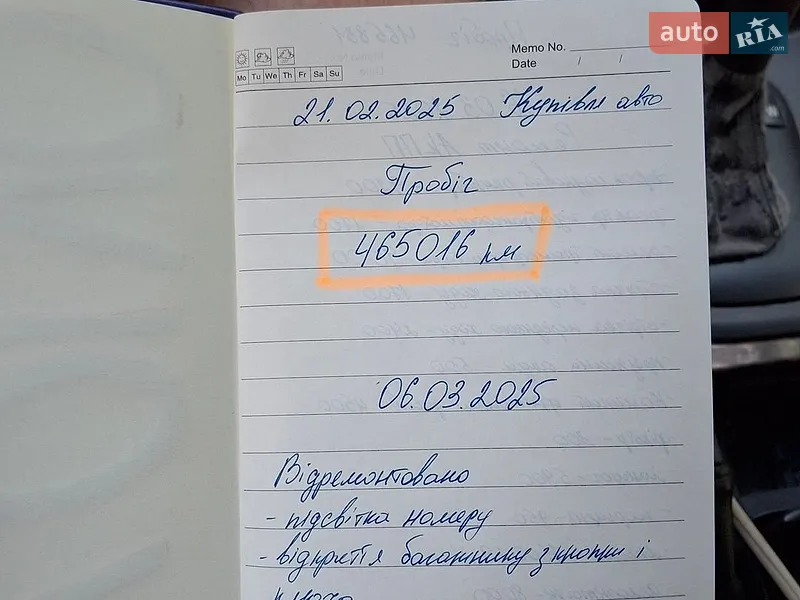 auto RIA .com
Memo No.
Mo Tu We Th Fr Sa Su
Date / /
21.02.2025 Купівля авто
Пробіг
465016 км
06.03.2025
Відремонтовано
- підсвітка номеру
- відкриття багажнику з кнопки і